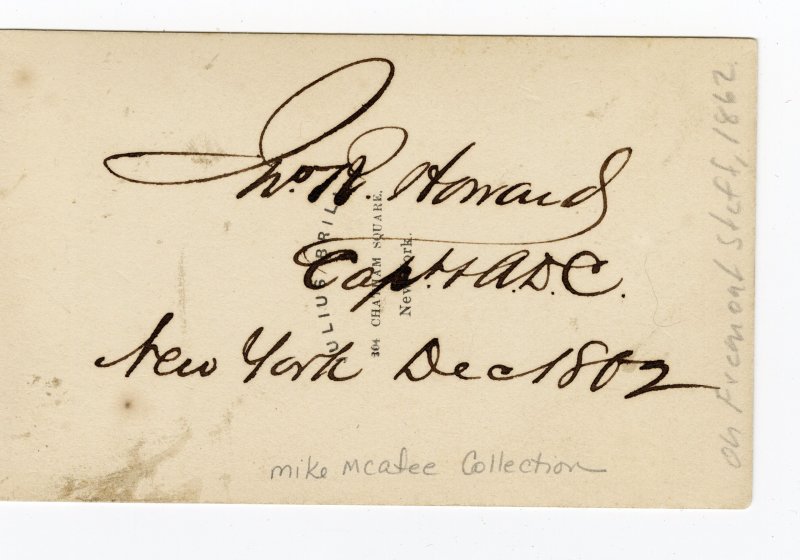 Jno. R. Howard
Capt. & A.D.C.
New York Dec 1862
JULIUS BRILL
204 CHATHAM SQUARE,
New York.
mike mcafee Collection
On Fremont Staff, 1862.